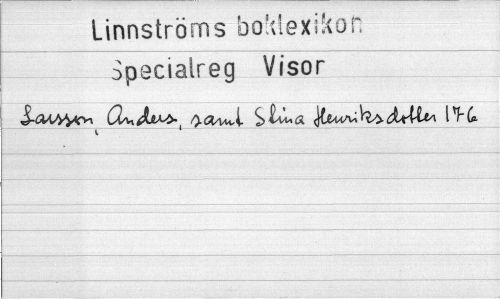 Linnströms boklexikon
Specialreg Visor
Larsson, Anders, samt Stina Henriksdotter 176